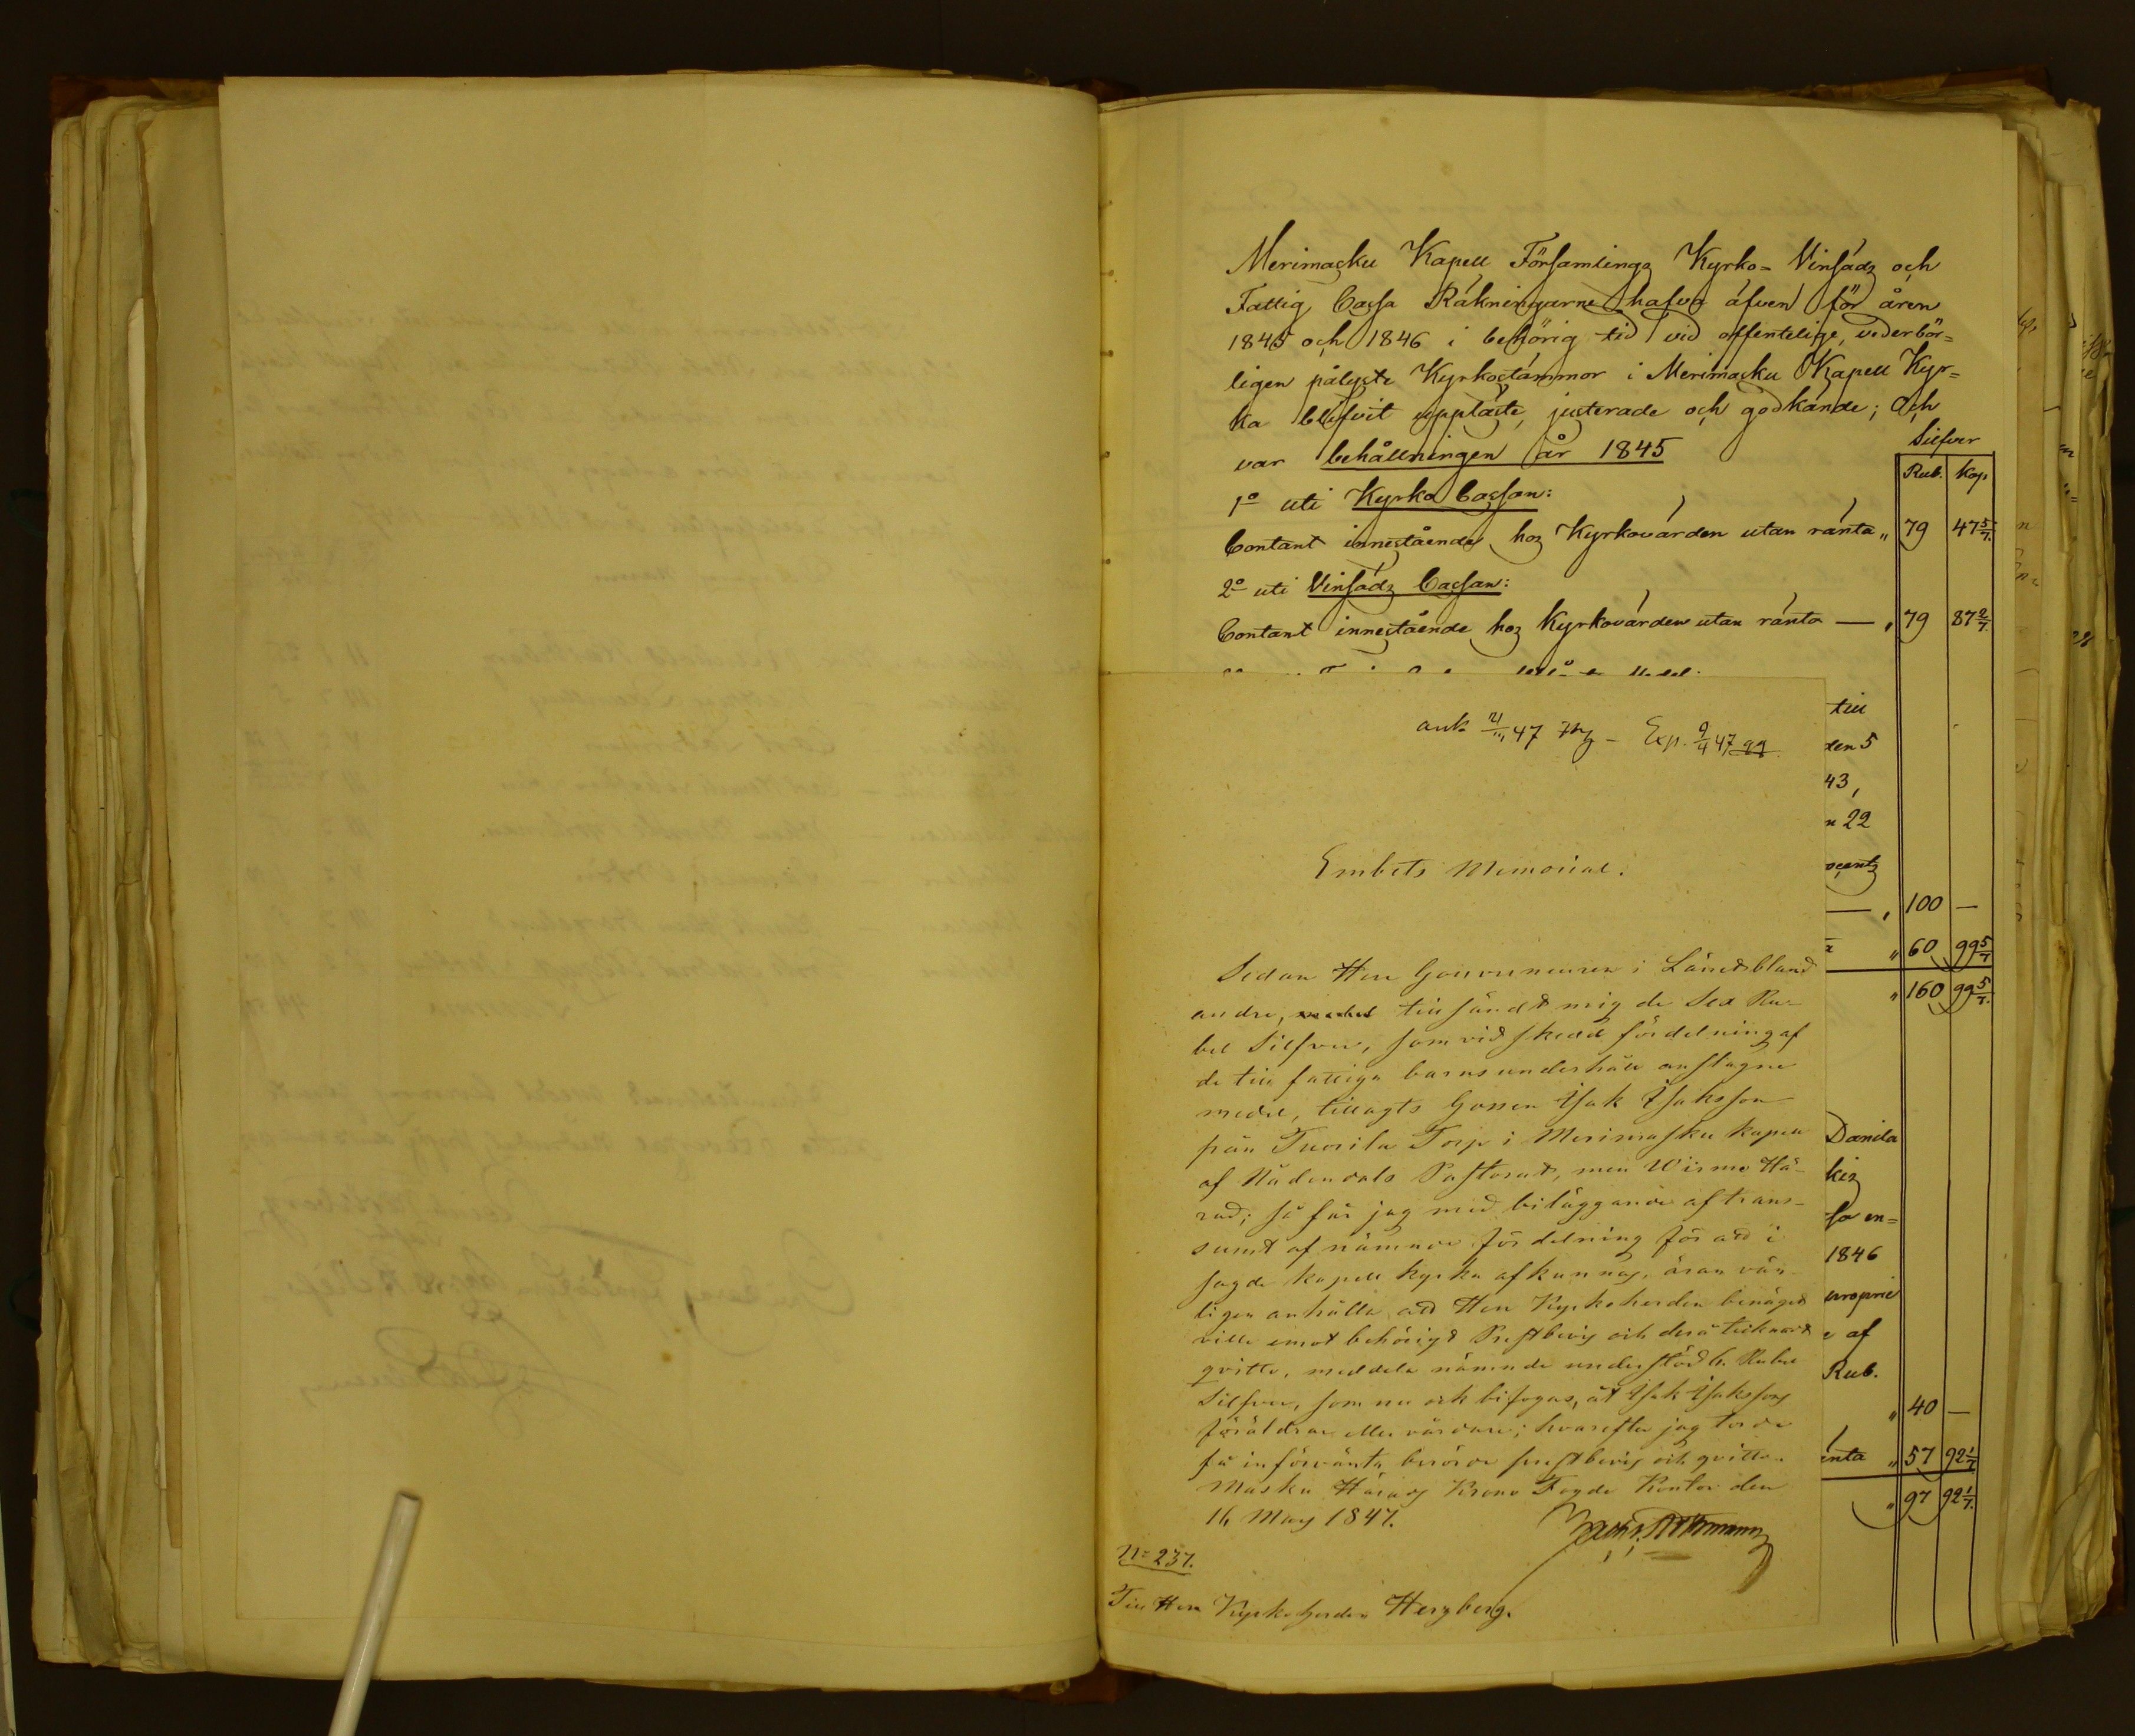 Merimasku Kapell Församlings Kyrko- Vinsäds och
Fattig Cassa Räkningarne hafva äfven för åren
1845 och 1846 i behörig tid vid offentelige, vederbör=
ligen pålyste Kyrkostämmor i Merimasku Kapell Kyr=
ka blifvit uppläste, justerade och godkände; Och
var behållningen år 1845
Silfver
Rub. Kop
1o uti Kyrko Cassan:
Contant innestående hos Kyrkovärden utan ränta „ 79 47 5/7.
2o uti Vinsäds Cassan:
Contant innestående hos Kyrkovärden utan ränta — „ 79 87 2/7.
till
den 5
43,
n 22
100 —
„ 60 99 5/7
„ 160 99 5/7.
Danila
kis
sa en=
1846
proprie
e af
Rub.
„ 40 —
änta „ 57 92 1/7
„ 97 92 1/7.
ank 21/III 47 – Exp. 9/4 47
Embets Memorial.
Sedan Herr Gouverneuren i Länet bland
andra, tillsändt mig de Sex Ru-
bel Silfver, som vid skedd fördelning af
de till fattiga barns underhåll anslagne
medel, tillagts Gossen Isak Isaksson
från Tuorila Torp i Merimasku Kapell
af Nådendals Pastorat, men Wirmo Hä-
rad; så får jag med biläggande af trans-
sumt af nämnde fördelning för att i
sagde Kapell Kyrka afkunnas, äran vän-
ligen anhålla att Herr Kyrkoherden benäget
ville emot behörigt Prestbevis och derå tecknadt
qvitto, meddela nämnde understöd 6. Rubel
Silfver, som nu ock bifogas, åt Isak Isakssons
föräldrar eller vårdare; hvarefter jag torde
få införvänta berörde prestbevis och qvitto.
Masku Härads Krono Fogde Kontor den
16 Mars 1847.
No 237.
Till Herr Kyrkoherden Herzberg.